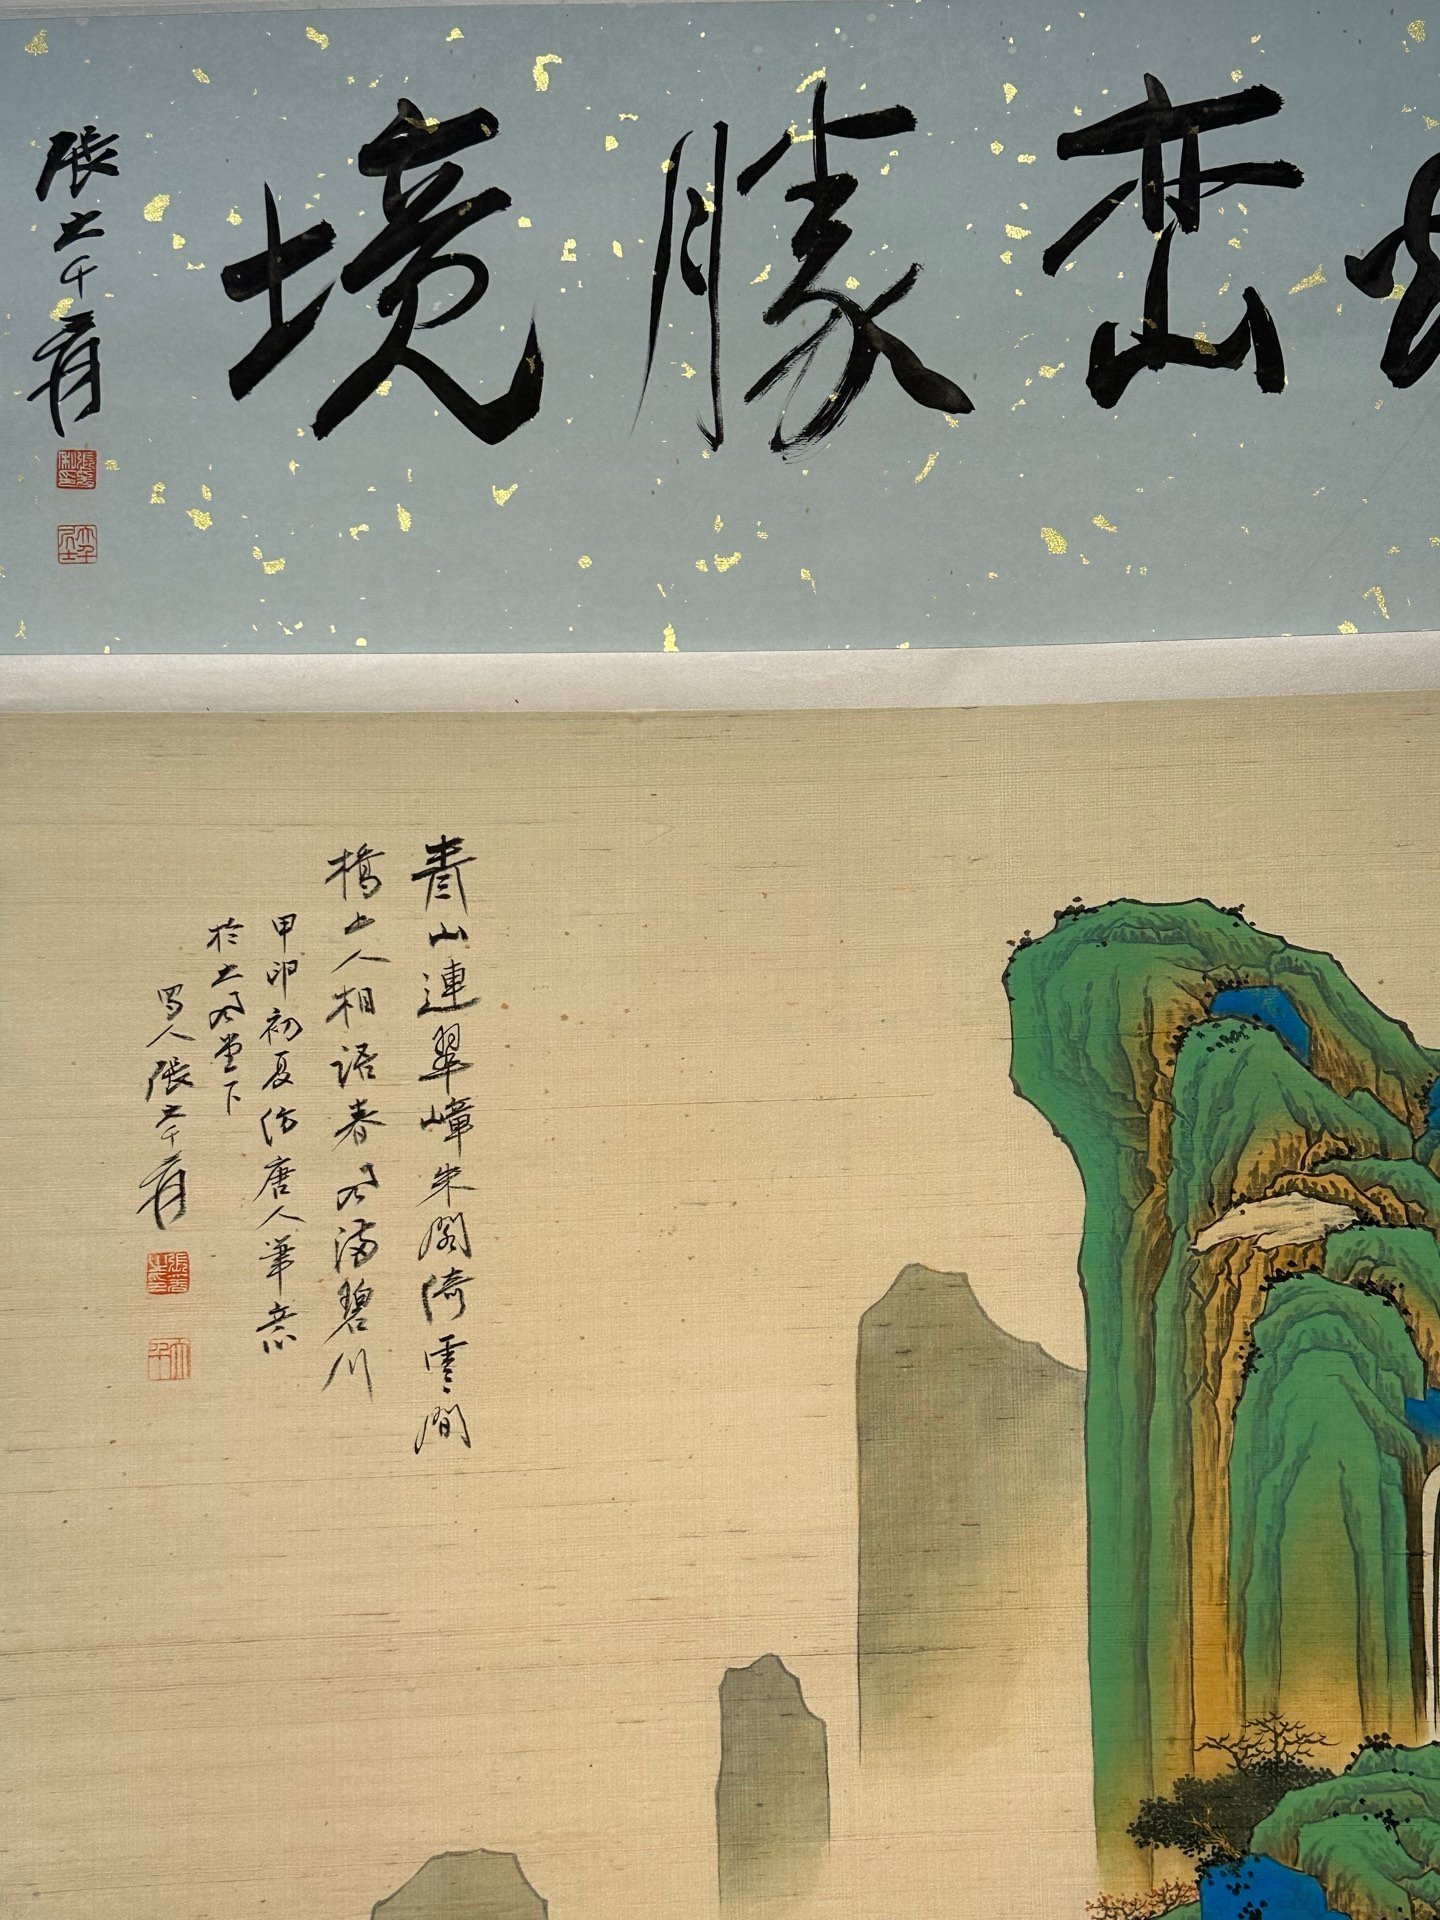 峦勝境
張大千爰
張爰私印
大千居士
青山連翠嶂朱閣倚雲間
橋上人相語春風滿碧川
甲卯初夏仿唐人筆意
於大風堂下
蜀人張大千爰
大千